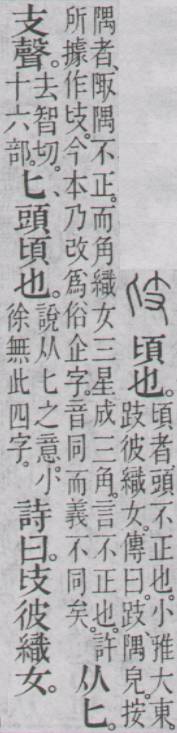 𠤕頃也。
頃者、頭不正也。小雅大東。
跂彼織女。傳曰。跂、隅皃。按
隅者、陬隅不正。而角織女三星成三角。言不正也。許
所據作𠤕。今本乃改爲俗企字。音同而義不同矣。
从匕。
支聲。
去智切。
十六部。
匕頭頃也。
說从匕之意。小
徐無此四字。
詩曰。𠤕彼織女。